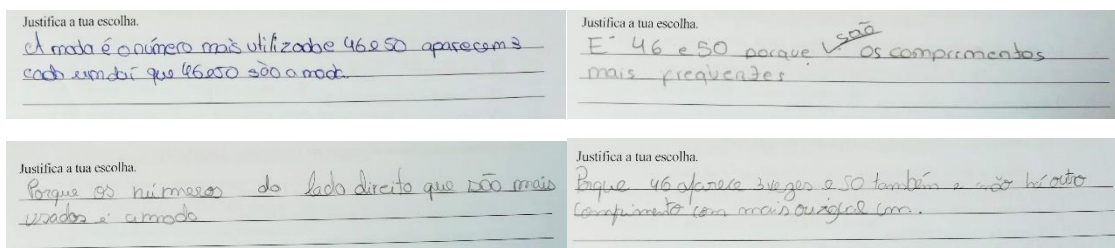 Justifica a tua escolha.
A moda é o número mais utilizado e 46 e 50 aparecem 3
cada um daí que 46 e 50 são a moda.
Justifica a tua escolha.
E' 46 e 50 porque são os comprimentos
mais frequentes.
Justifica a tua escolha.
Porque os números do lado direito que são mais
usados é a moda
Justifica a tua escolha.
Porque 46 aparece 3 vezes e 50 também e não há outro
comprimento com mais ou igual